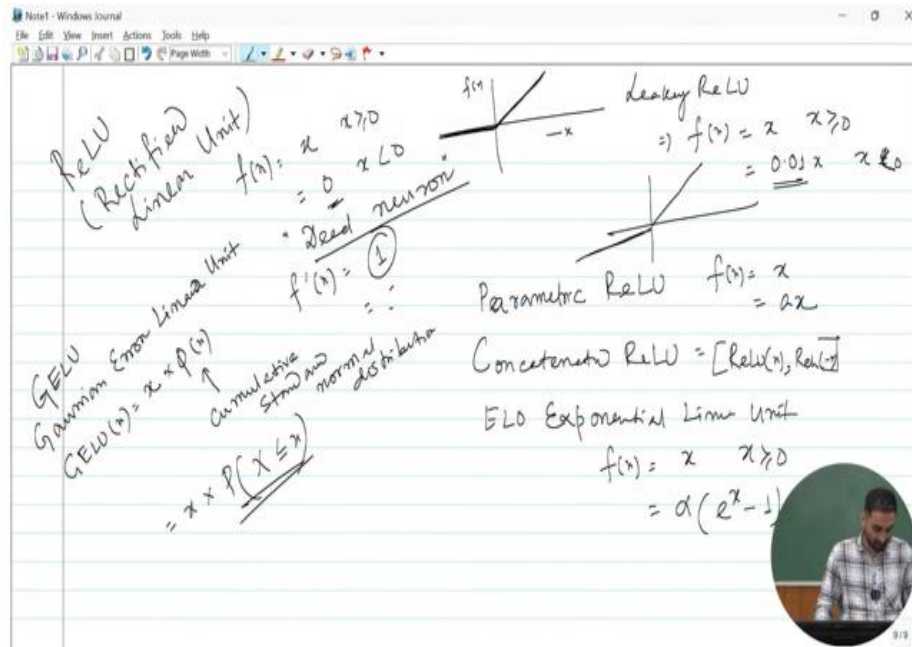 Note1 - Windows Journal
File Edit View Insert Actions Tools Help
Page Width
ReLU
(Rectified
Linear Unit)
f(x) = x x≥0
= 0 x<0
"Dead neuron"
f'(x) = 1
f(x)
x
Leaky ReLU
⇒ f(x) = x x≥0
= 0.01x x<0
Parametric ReLU f(x) = x
= ax
Concatenated ReLU = [ReLU(x), ReLU(-x)]
ELU Exponential Linear Unit
f(x) = x x≥0
= α(e^x - 1)
GELU
Gaussian Error Linear Unit
GELU(x) = x × φ(x)
↑
cumulative
standard
normal
distribution
= x × P(X ≤ x)
9/9